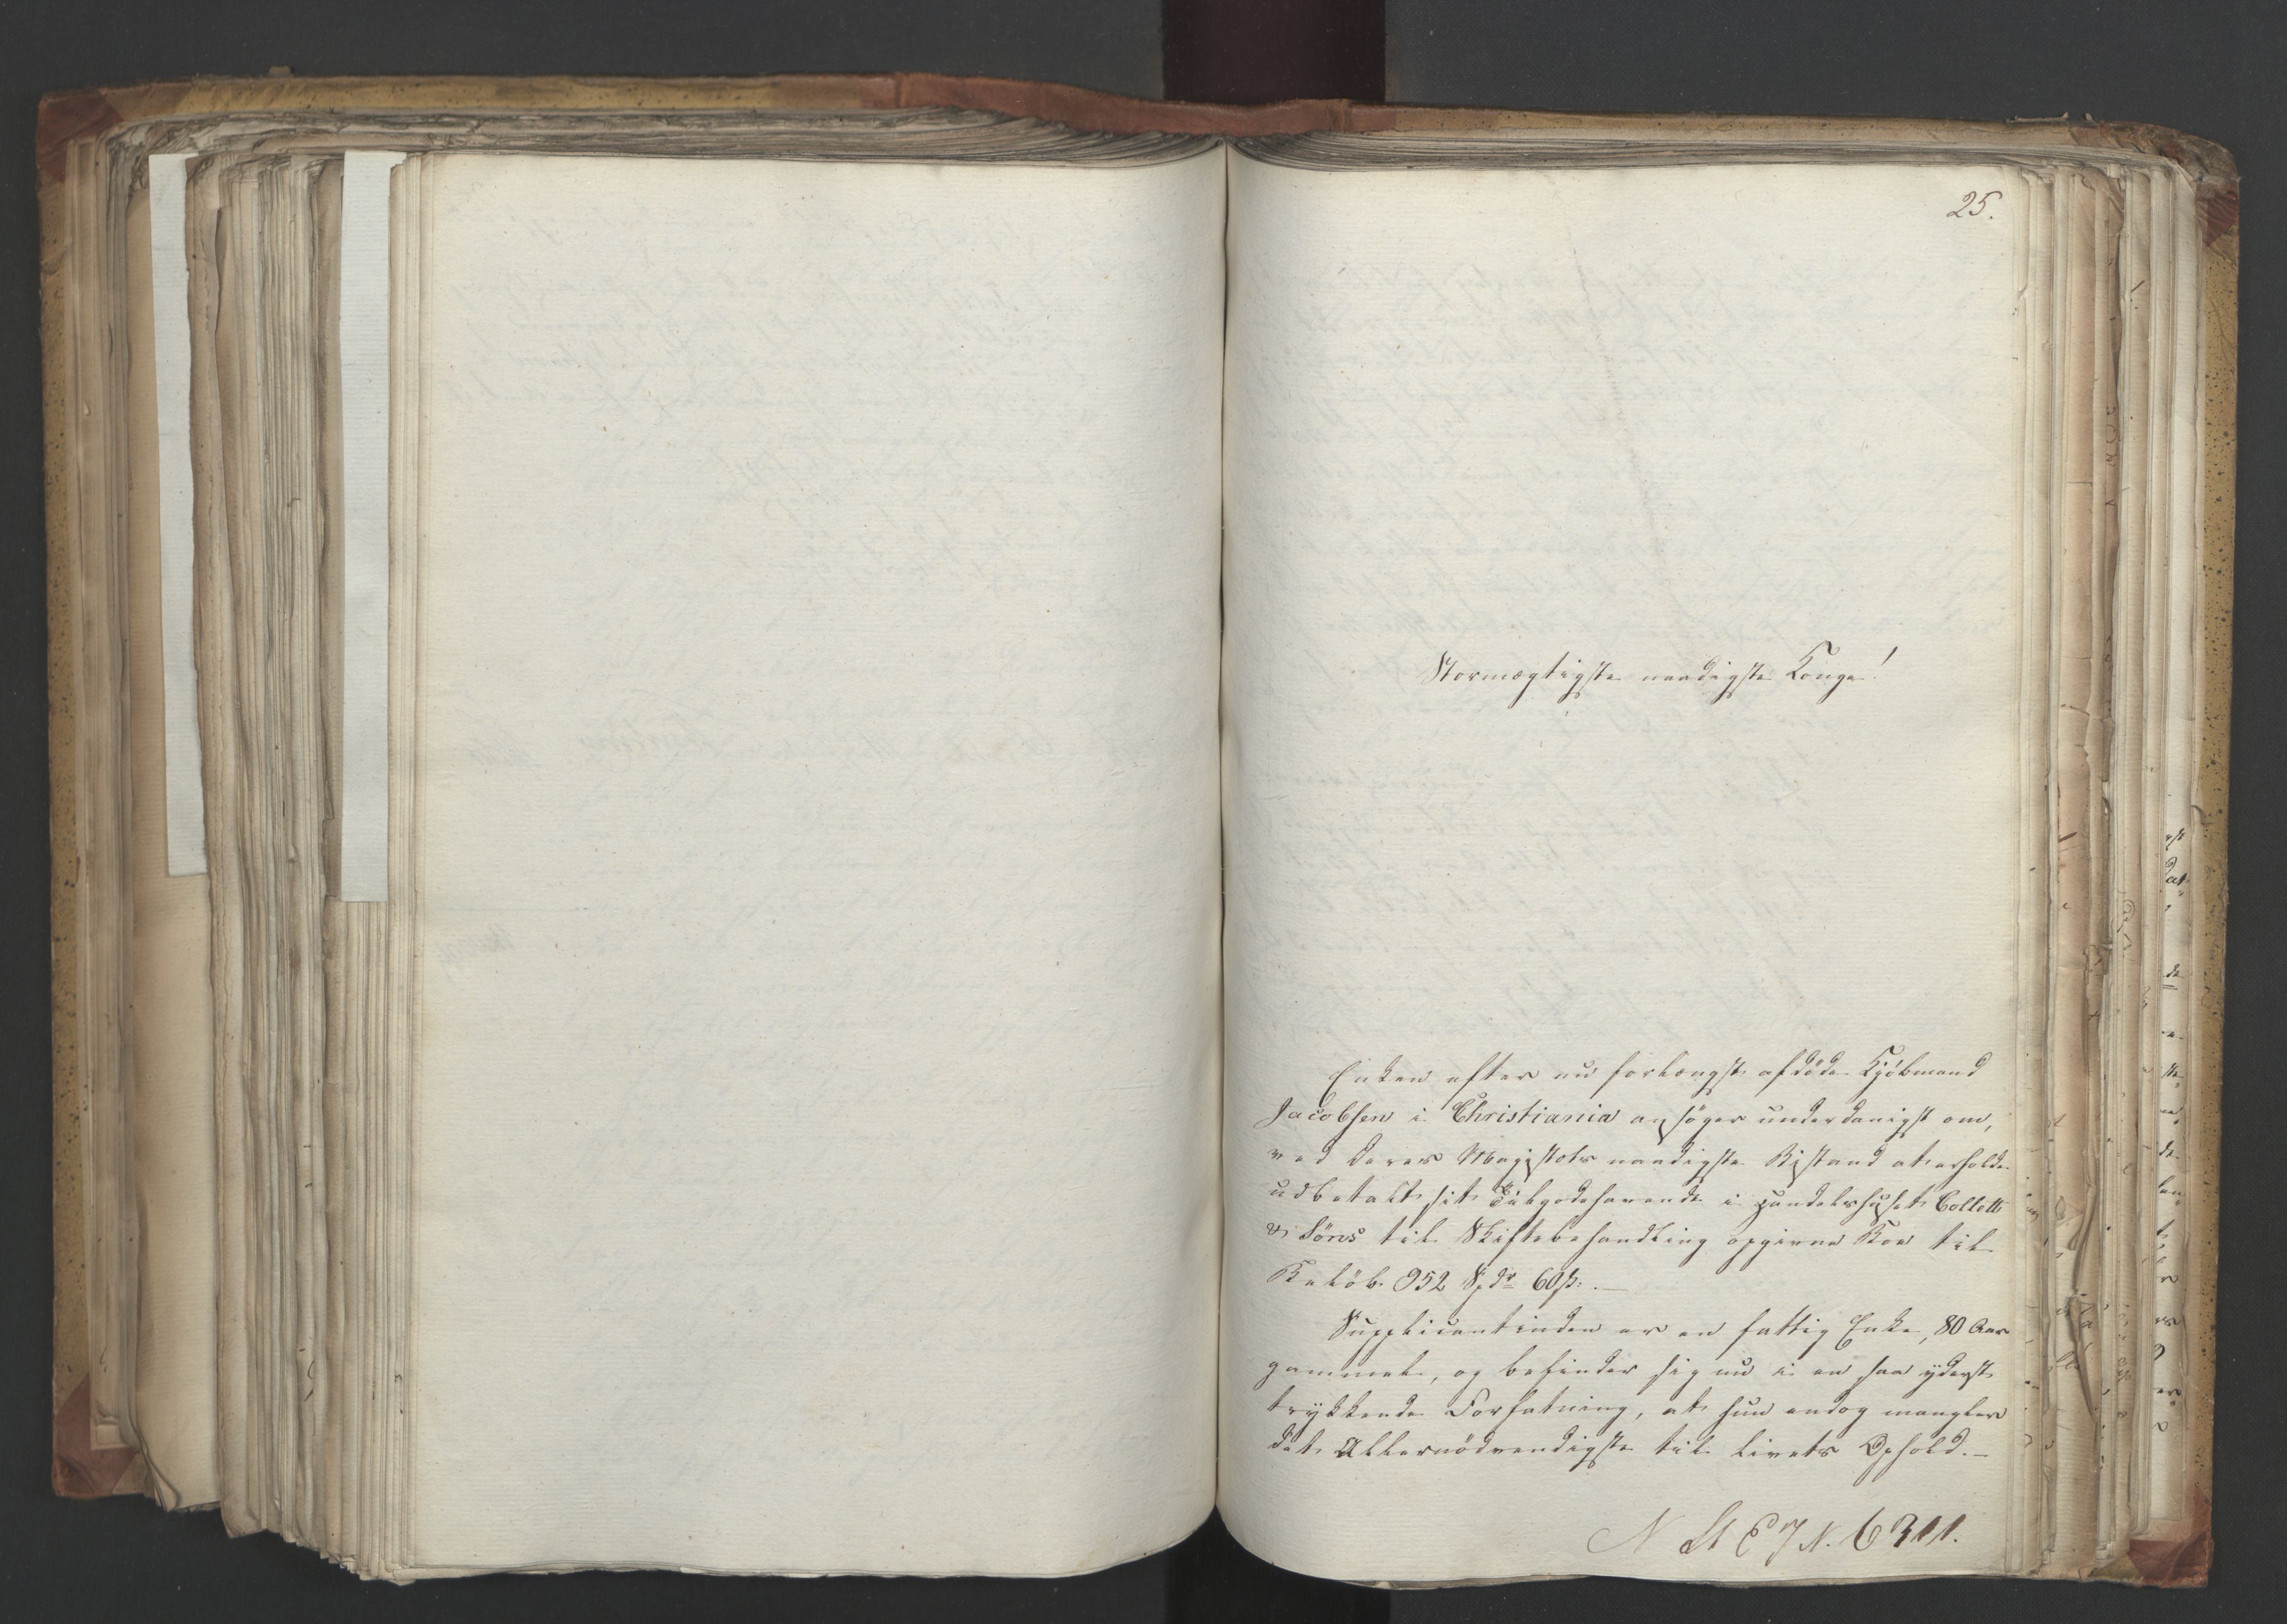 25.
Stormægtigste naadigste Konge!
Enken efter nu forlængst afdöde Kjöbmand
Jacobsen i Christiania ansöger underdanigst om,
ved Deres Majestæts naadigste Bistand at erholde
udbetalt sit Tilgodehavende i Handelshuset Collett
& Söns til Skiftebehandling opgivne Boe til
Belöb 952 Spdr 60 ß. —
Supplicantinden er en fattig Enke, 80 Aar
gammel, og befinder sig nu i en saa yderst
trykkende Forfatning, at hun endog mangler
det Allernödvendigste til Livets Ophold. —
N St E J N. 6311.